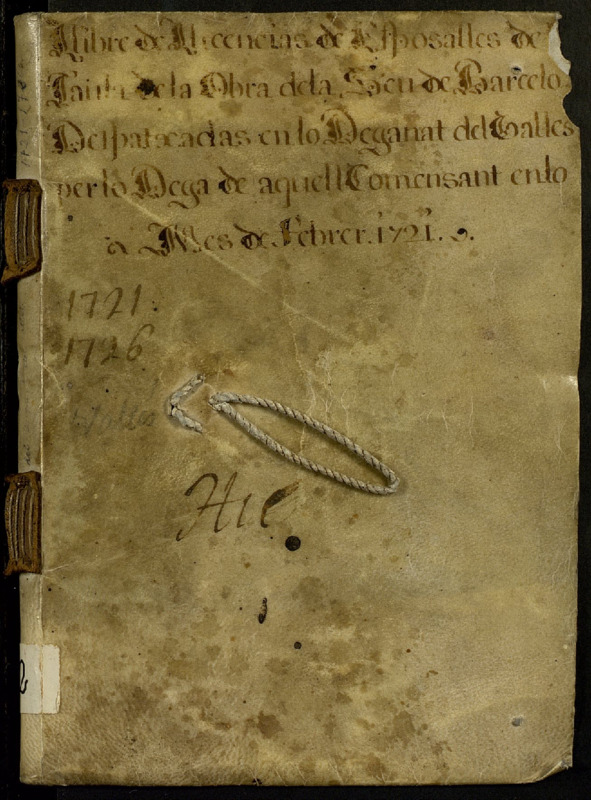 Llibre de Llicencias de Esposalles de
Taula de la Obra de la Seu de Barcelo
Despatxadas en lo Deganat del Valles
per lo Dega de aquell Comensant en lo
Mes de Febrer. 1721.
1721.
1726
Valles